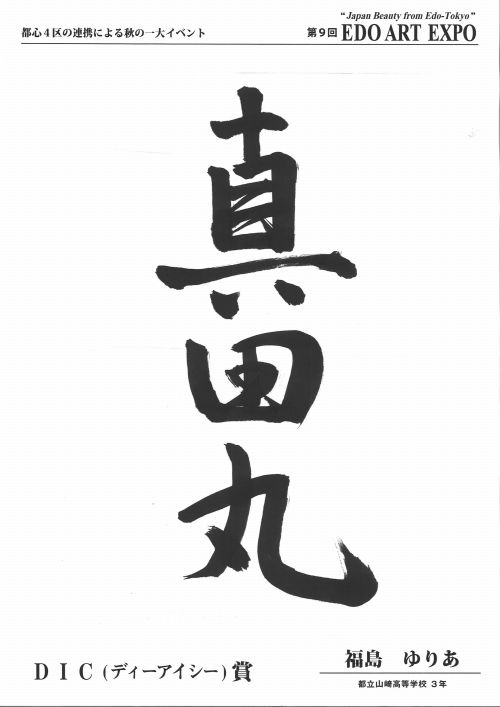 都心4区の連携による秋の一大イベント
"Japan Beauty from Edo-Tokyo"
第9回 EDO ART EXPO
真田丸
DIC(ディーアイシー)賞
福島 ゆりあ
都立山崎高等学校 3年